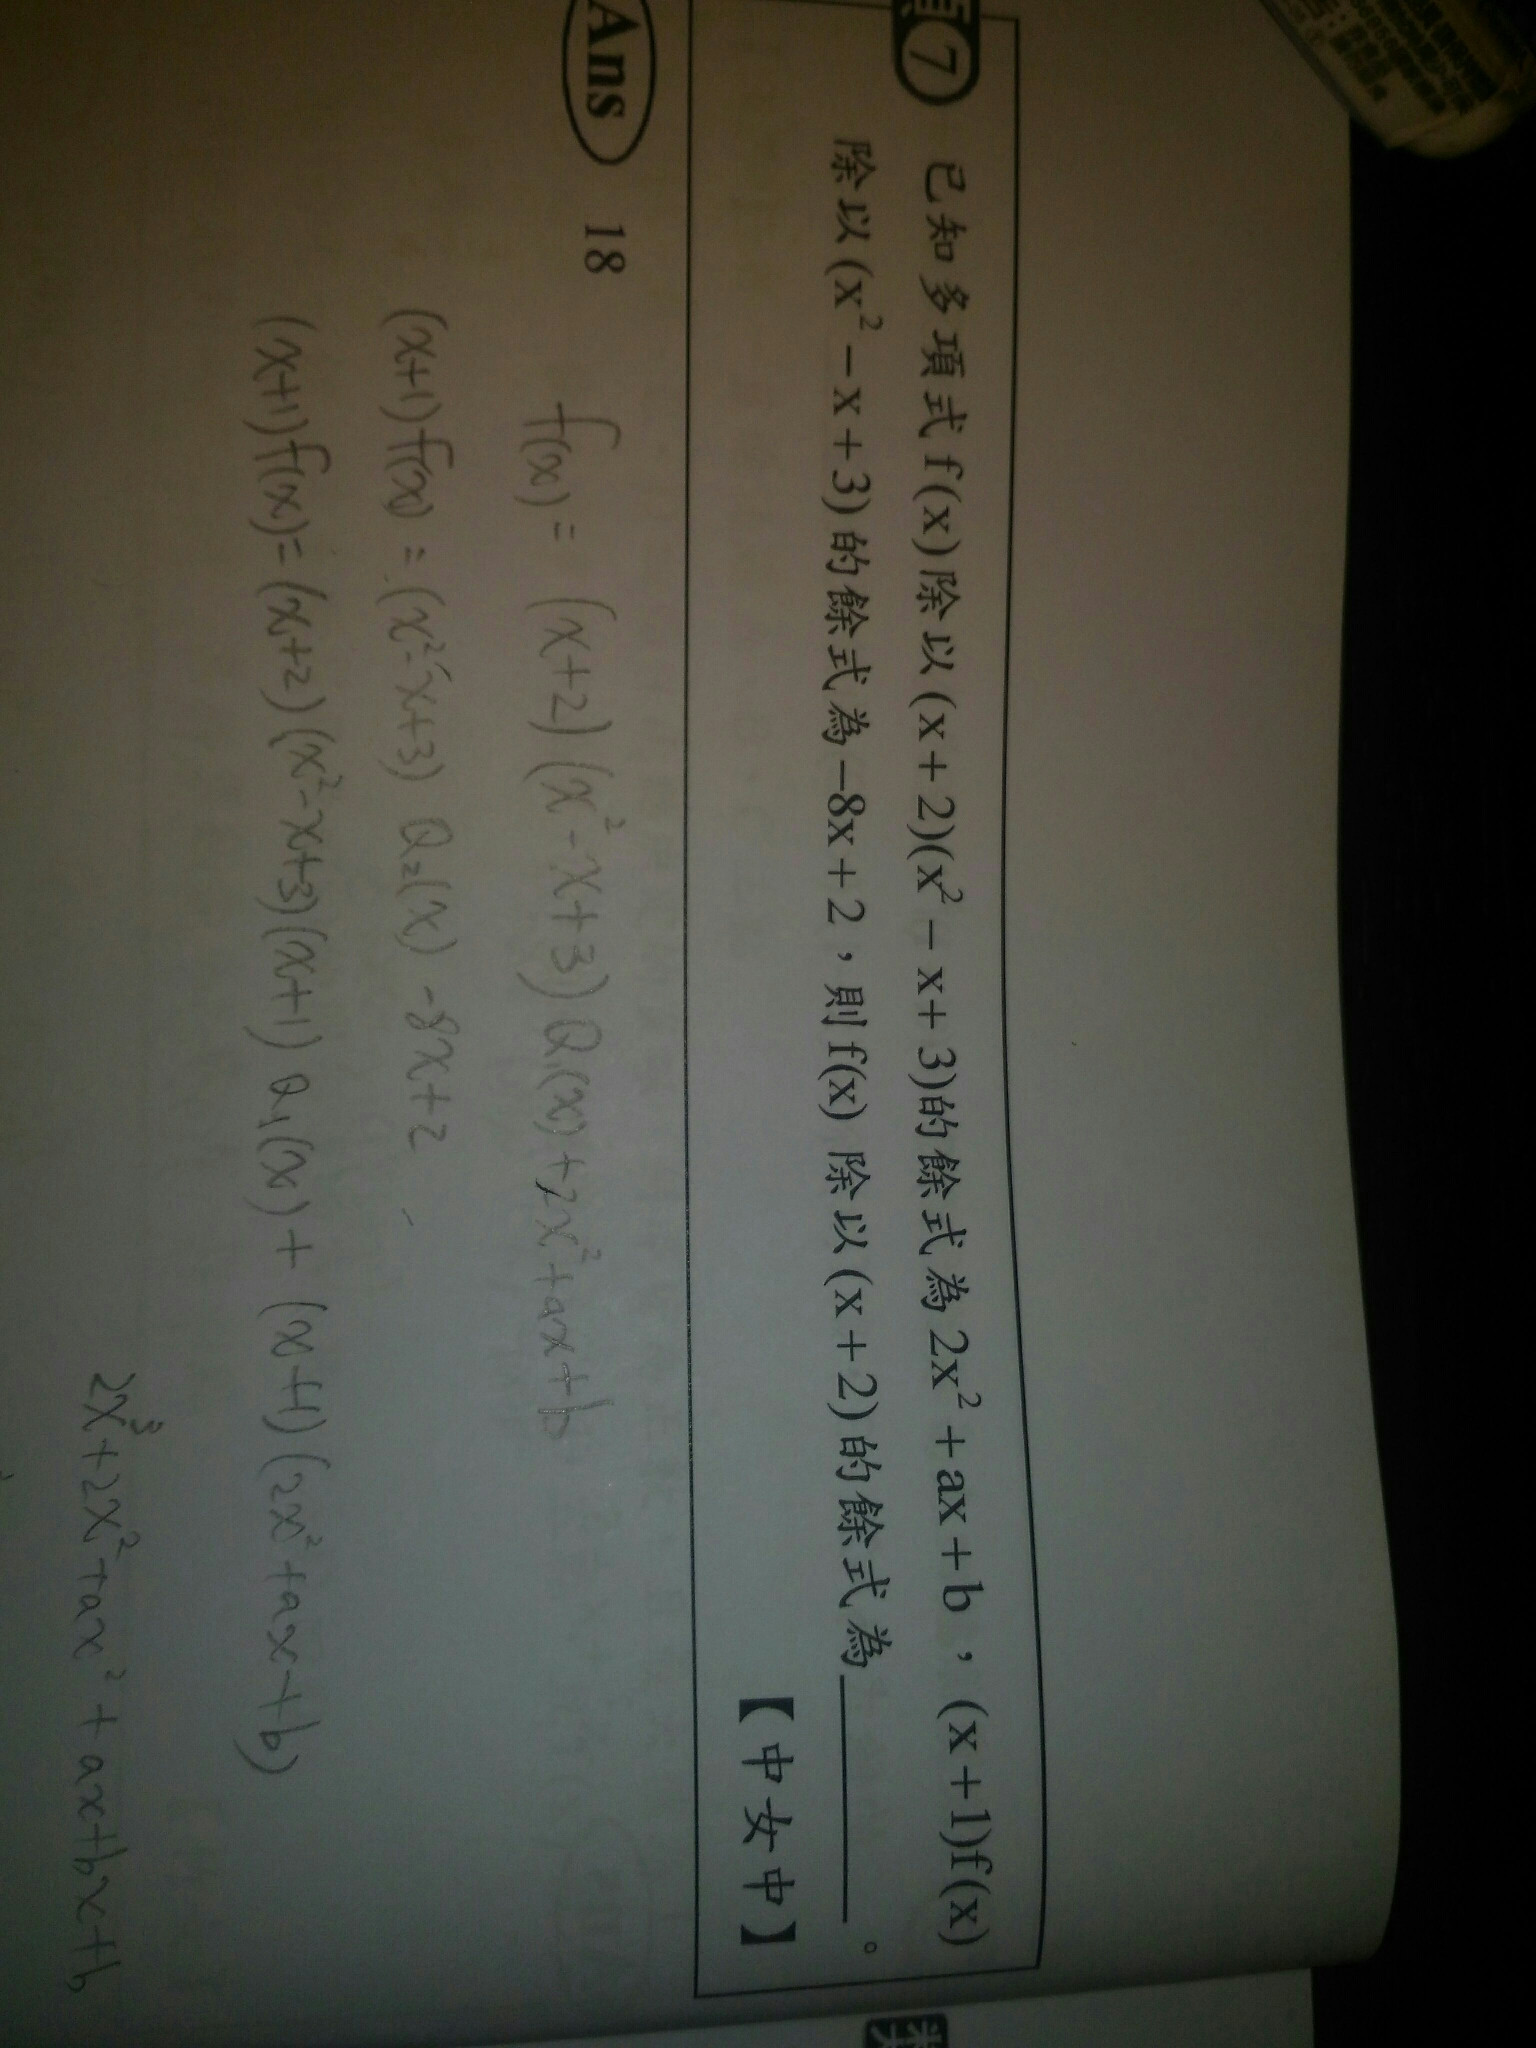 7 已知多項式 f(x) 除以 (x+2)(x²－x+3) 的餘式為 2x²+ax+b，(x+1)f(x)
除以 (x²－x+3) 的餘式為 －8x+2，則 f(x) 除以 (x+2) 的餘式為______。
【中女中】
Ans 18
f(x) = (x+2)(x²-x+3)Q₁(x)+2x²+ax+b
(x+1)f(x) = (x²-x+3)Q₂(x) -8x+2
(x+1)f(x)=(x+2)(x²-x+3)(x+1)Q₁(x)+(x+1)(2x²+ax+b)
2x³+2x²+ax²+ax+bx+b